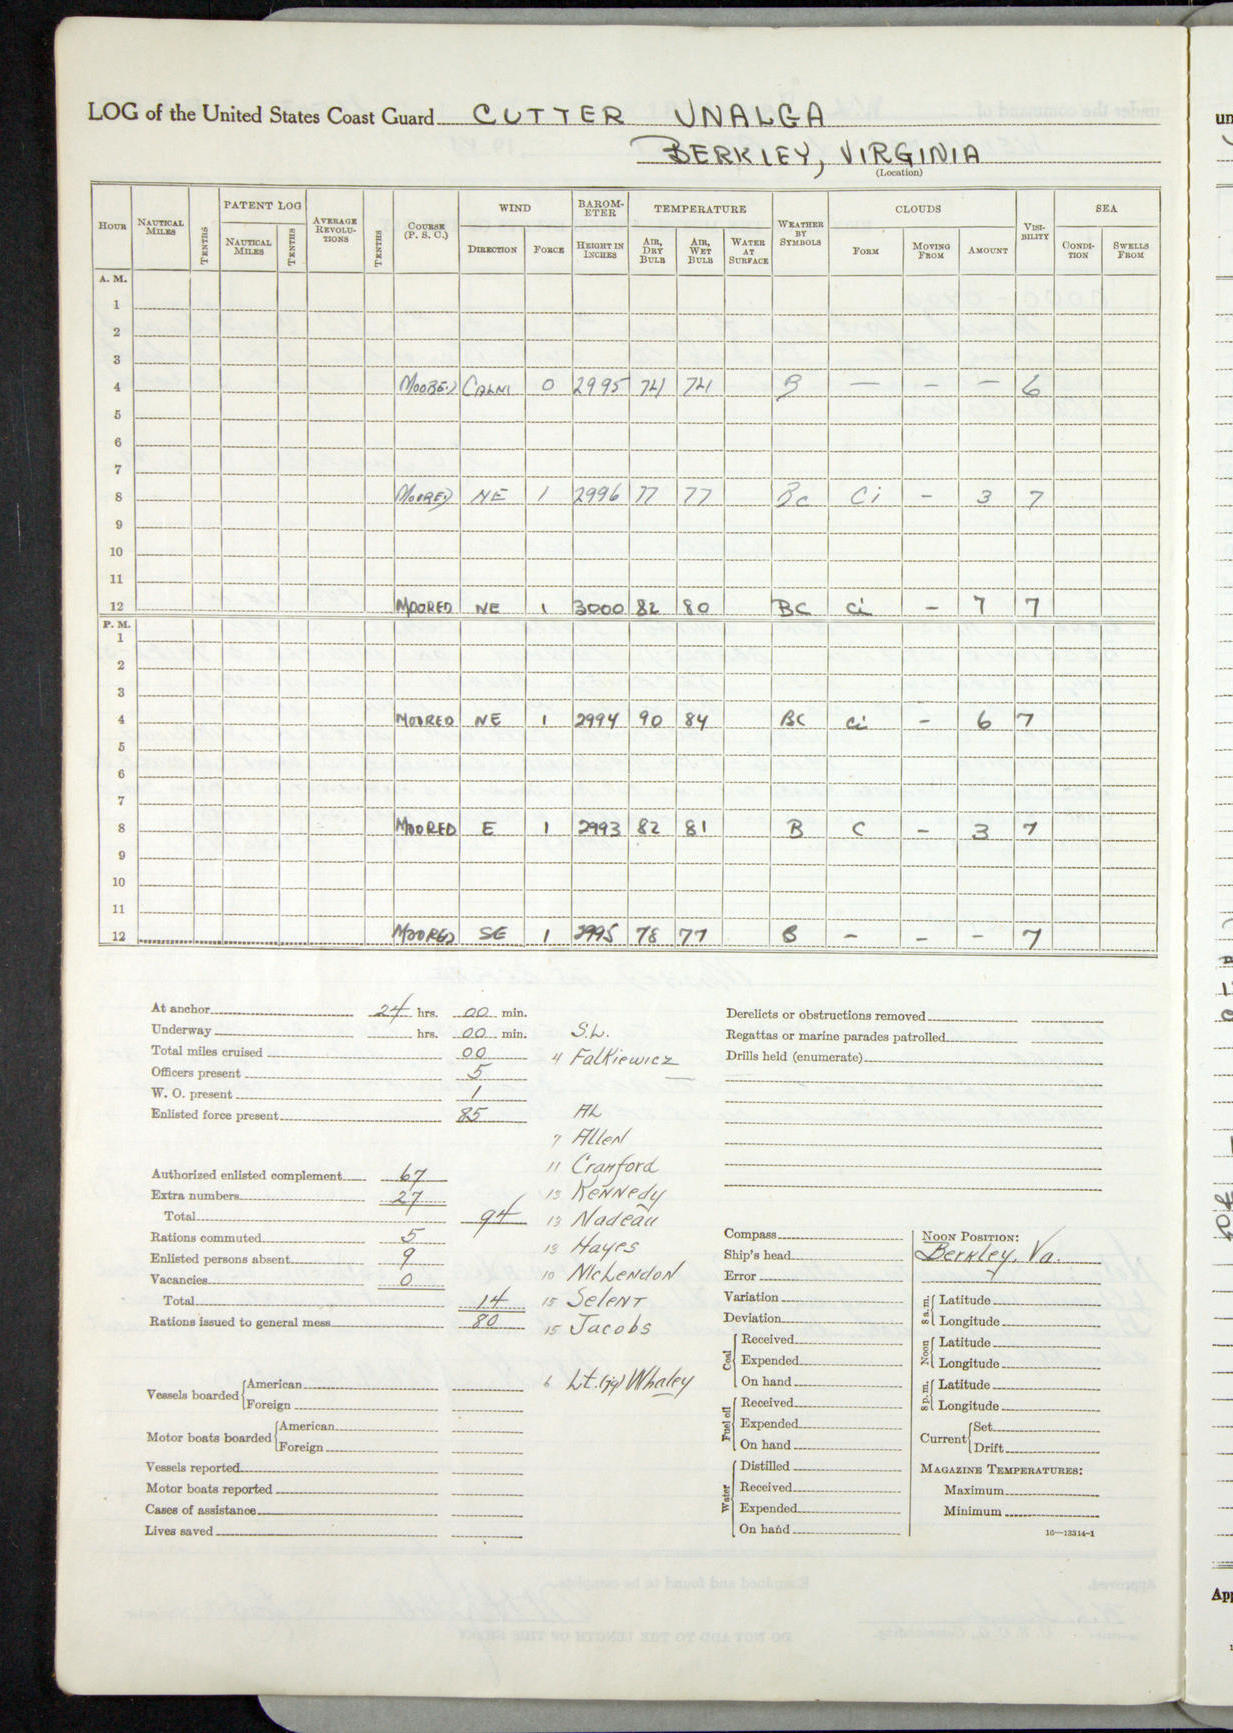 LOG of the United States Coast Guard CUTTER UNALGA
BERKLEY, VIRGINIA
(Location)
HOUR NAUTICAL MILES TENTHS PATENT LOG NAUTICAL MILES TENTHS AVERAGE REVOLU-TIONS TENTHS COURSE (P. S. C.) WIND DIRECTION FORCE BAROM-ETER HEIGHT IN INCHES TEMPERATURE AIR, DRY BULB AIR, WET BULB WATER AT SURFACE WEATHER BY SYMBOLS CLOUDS FORM MOVING FROM AMOUNT VISI-BILITY SEA CONDI-TION SWELLS FROM
A. M.
1
2
3
4 MOORED CALM 0 2995 74 74 B — — — 6
5
6
7
8 MOORED NE 1 2996 77 77 Bc Ci - 3 7
9
10
11
12 MOORED NE 1 3000 82 80 BC Ci - 7 7
P. M.
1
2
3
4 MOORED NE 1 2994 90 84 BC Ci - 6 7
5
6
7
8 MOORED E 1 2993 82 81 B C - 3 7
9
10
11
12 MOORED SE 1 2995 78 77 B - - - 7
At anchor 24 hrs. 00 min.
Underway hrs. 00 min.
Total miles cruised 00
Officers present 5
W. O. present 1
Enlisted force present 85
Authorized enlisted complement 67
Extra numbers 27
Total 94
Rations commuted 5
Enlisted persons absent 9
Vacancies 0
Total 14
Rations issued to general mess 80
Vessels boarded American
Foreign
Motor boats boarded American
Foreign
Vessels reported
Motor boats reported
Cases of assistance
Lives saved
S.L.
4 Falkiewicz
AL
7 Allen
11 Cranford
13 Kennedy
13 Nadeau
13 Hayes
10 McLendon
15 Selent
15 Jacobs
6 Lt.(jg) Whaley
Derelicts or obstructions removed
Regattas or marine parades patrolled
Drills held (enumerate)
Compass
Ship's head
Error
Variation
Deviation
Coal Received
Expended
On hand
Fuel oil Received
Expended
On hand
Water Distilled
Received
Expended
On hand
NOON POSITION:
Berkley, Va.
8 a. m. Latitude
Longitude
Noon Latitude
Longitude
8 p. m. Latitude
Longitude
Current Set
Drift
MAGAZINE TEMPERATURES:
Maximum
Minimum
16—13314-1